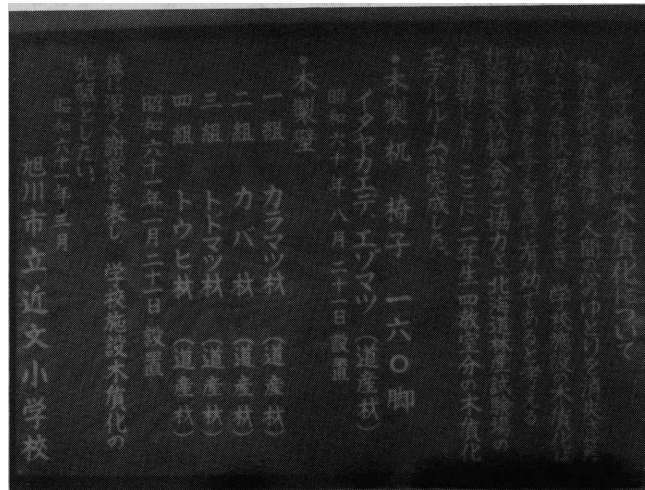 学校施設木質化について
物質文化の発達は、人間の心のゆとりを消失させ
かような状況にあるとき、学校施設の木質化は
心の安らぎを与える益で有効であると考える
北海道木材協会のご協力と北海道林産試験場の
ご指導により ここに二年生四教室分の木質化
モデルルームが完成した。
●木製机 椅子 一六〇脚
イタヤカエデ、エゾマツ (道産材)
昭和六十年八月二十一日設置
●木製壁
一組 カラマツ材 (道産材)
二組 カバ材 (道産材)
三組 トドマツ材 (道産材)
四組 トウヒ材 (道産材)
昭和六十一年一月二十一日設置
深く謝意を表し 学校施設木質化の
先駆としたい。
昭和六十一年二月
旭川市立近文小学校